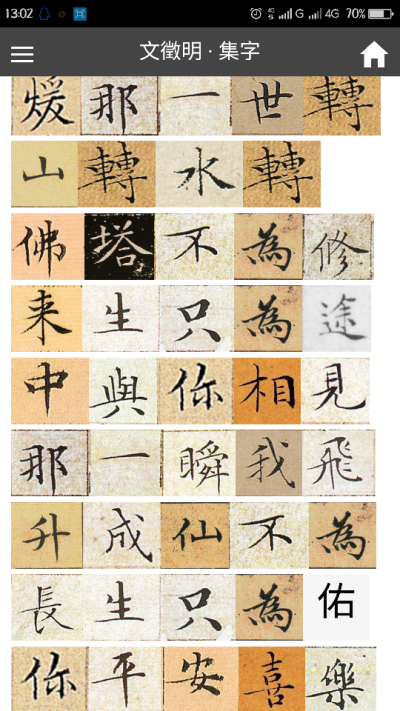 13:02 4G G 4G 70%
文徵明·集字
煖那一世轉
山轉水轉
佛塔不為修
来生只為途
中與你相見
那一瞬我飛
升成仙不為
長生只為佑
你平安喜樂